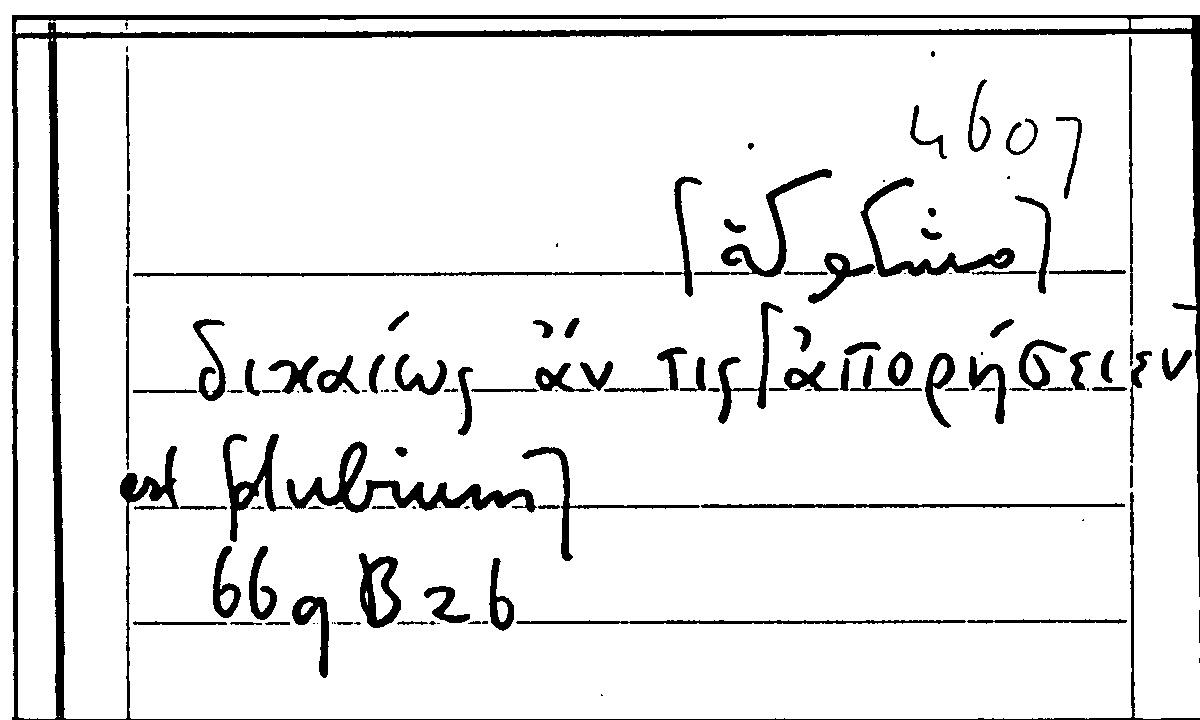 4607
δικαίως ἄν τις [ἀπορήσειεν
est [dubium]
669 B 26